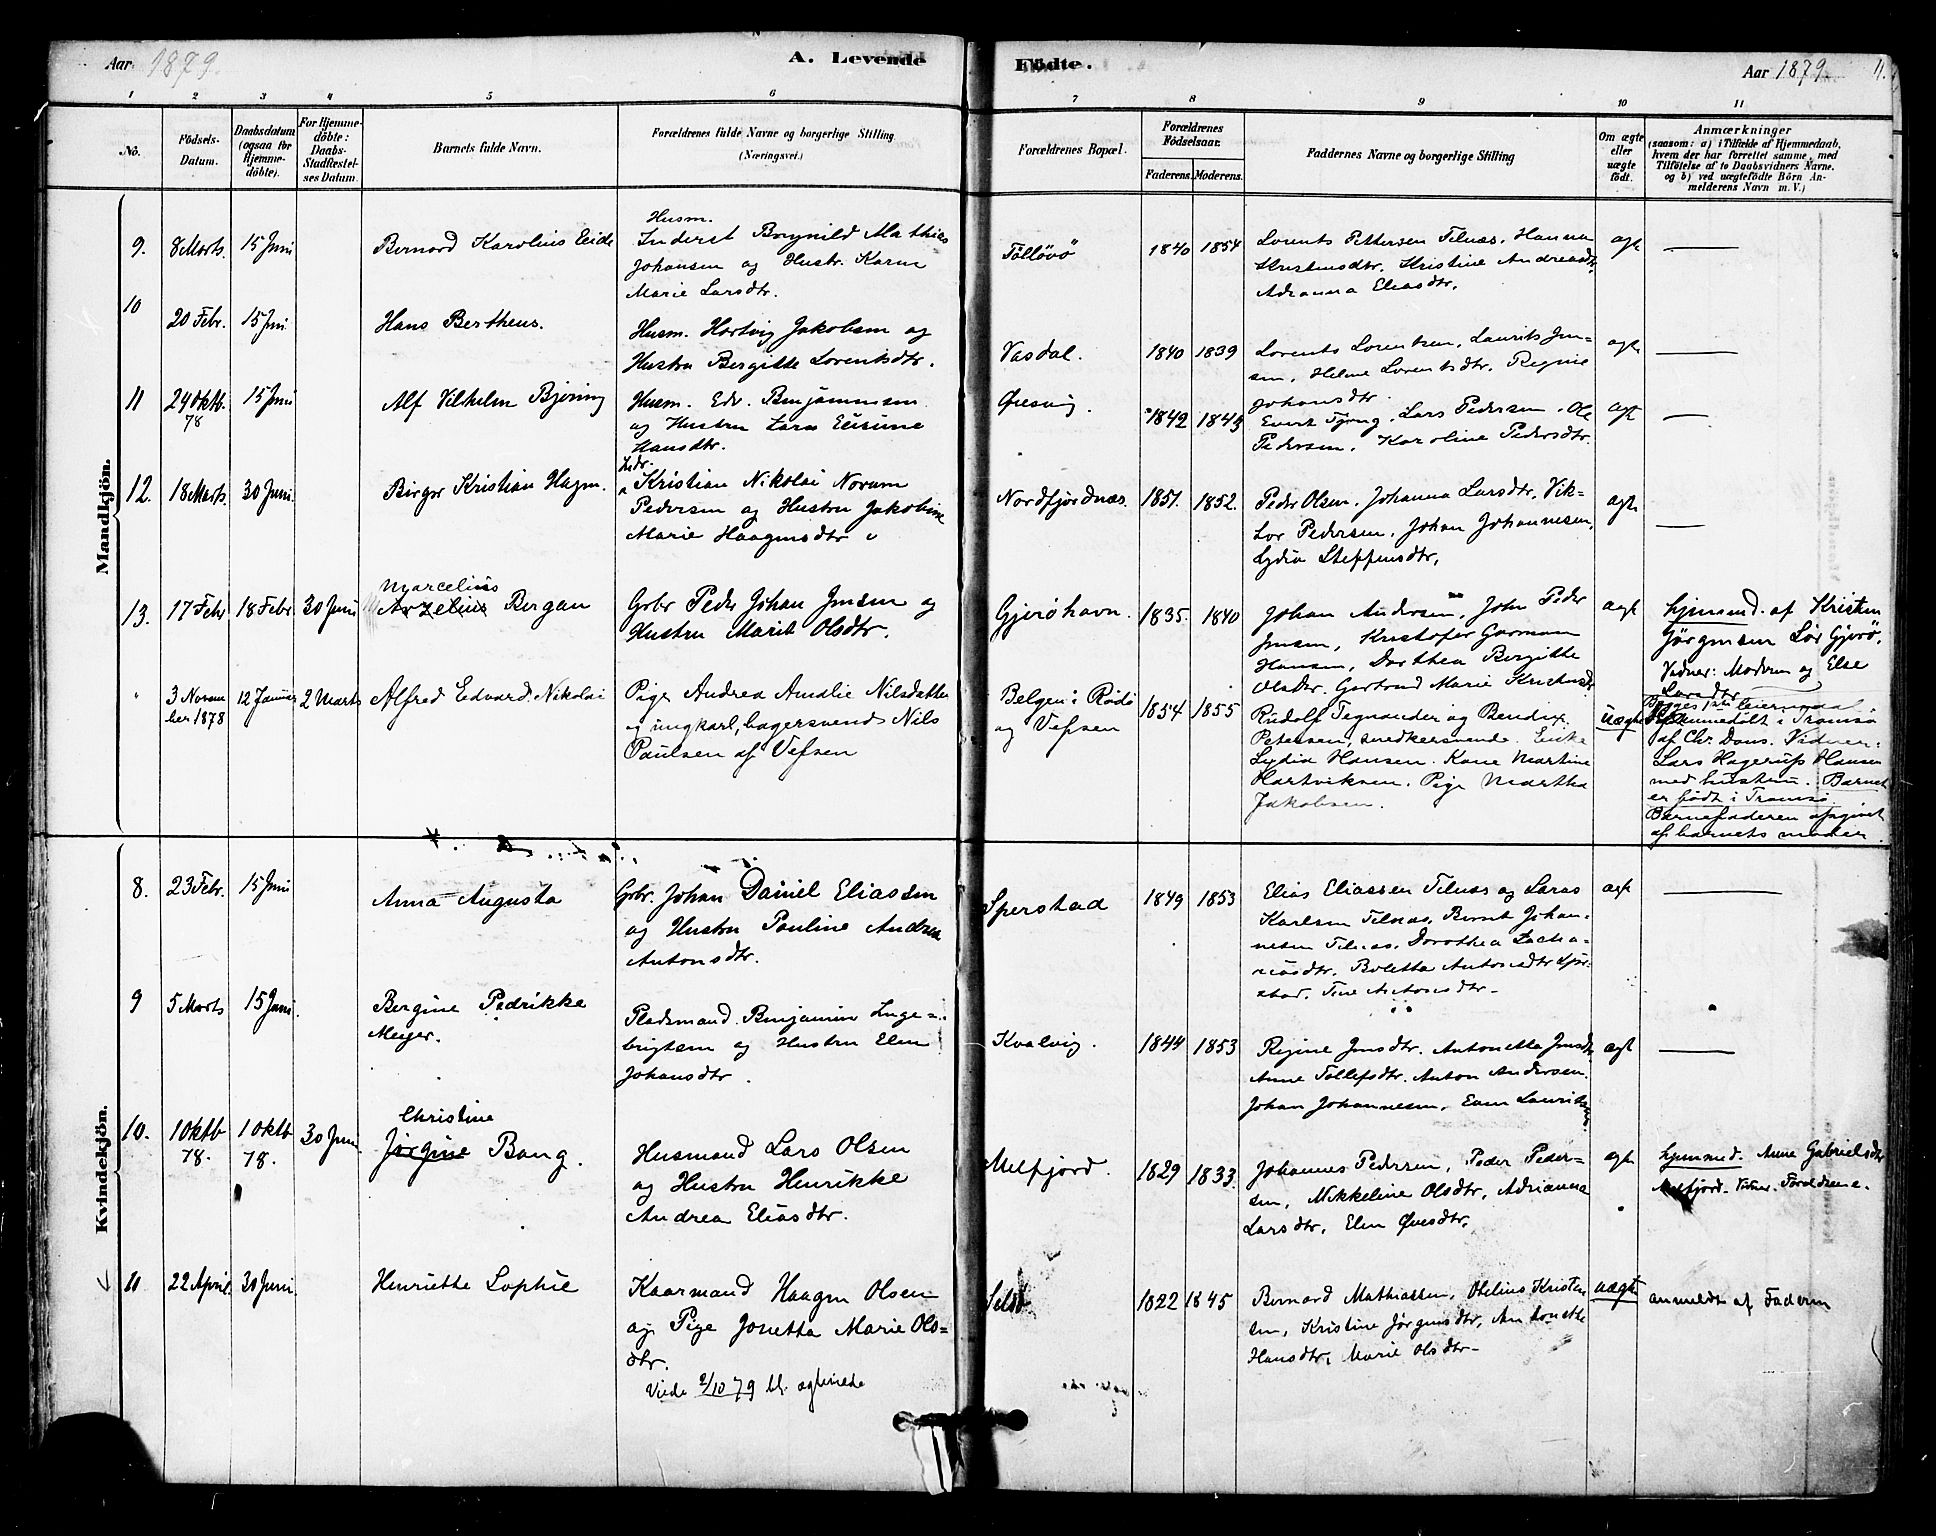 Aar 1879.
A. Levende
Födte.
Aar 1879.
11.
1 2 3 4 5 6 7 8 9 10 11
No.
Födsels-
Datum.
Daabsdatum
(ogsaa for
Hjemme-
döbte).
For Hjemme-
döbte:
Daabs-
Stadfæstel-
ses Datum.
Barnets fulde Navn.
Forældrenes fulde Navne og borgerlige Stilling
(Næringsvei.)
Forældrenes Bopæl.
Forældrenes
Födselsaar.
Faderens. Moderens.
Faddernes Navne og borgerlige Stilling
Om ægte
eller
uægte
födt.
Anmærkninger
(saasom: a) i Tilfælde af Hjemmedaab,
hvem der har forrettet samme, med
Tilföielse af to Daabsvidners Navne.
og b) ved uægtefödte Börn An-
melderens Navn m. V.)
Mandkjön.
9. 8 Marts. 15 Juni
Bernard Karolius Eide
Husm.
Inderst Brynild Mathias
Johansen og Hustr. Karen
Marie Larsdtr.
Tolløvø
1840 1854
Lorents Pettersen Telnæs, Hanna
Kristensdtr. Kristine Andreasdtr.
Adrianna Eliasdtr.
agte
10
20 Febr. 15 Juni
Hans Bertheus.
Husm. Hartvig Jakobsen og
Hustru Bergitte Lorentsdtr.
Vasdal.
1840 1839
Lorents Lorentsen, Laurits Jen-
sen, Helene Lorentsdtr. Regine
Johansdtr.
agte
11 24 Oktb. 15 Juni
78
Alf Vilhelm Bjøring
Husm. Edv. Benjaminsen
og Hustru Lara Elisine
Hansdtr.
Øresvig.
1842 1843
Evert Fyrug, Lars Pedersen, Ole
Pedersen, Karoline Pedersdtr
agte
12. 18 Marts. 30 Juni
Birger Kristian Hagen.
Indr.
Kristian Nikolai Norum
Pedersen og Hustru Jakobine
Marie Haagensdtr
Nordfjordnæs.
1851. 1852.
Peder Olsen, Johanna Larsdtr, Vik-
tor Pedersen, Johan Johannesen,
Lydia Steffensdtr.
agte
13. 17 Febr 18 Febr 30 Juni
Marcelius
Arzelius Bergan
Grbr Peder Johan Jensen og
Hustru Marit Olsdtr.
Gjerøhavn.
1835. 1840
Johan Andersen, John Peder
Jensen, Kristofer Garmann
Hansen, Dorthea Bergitte
Olsdtr. Gertrud Marie Kristensdtr
agte
hjemmed. af Kristen
Jørgensen Sør Gjerø.
Vidner: Moderen og Else
Larsdtr
" 3 Novem 12 Januar 2 Marts
ber 1878
Alfred Edvard Nikolai
Pige Andrea Amalie Nilsdatter
og ungkarl, bagersvend Nils
Paulsen af Vefsen
Belgen i Rødø
og Vefsen
1854 1855
Rudolf Tegnander og Bendix
Petersen, snedkersvende. Enke
Lydia Hansen. Kone Martine
Hartviksen. Pige Martha
Jakobsen.
uægte
Begges 1ste leiermaal.
Hjemmedøbt i Tromsø
af Chr. Dons. Vidner:
Lars Hagerup Hansen
med hustru. Barnet
er født i Tromsø
Barnefaderen opgivet
af barnets moder.
Kvindekjön.
8. 23 Febr. 15 Juni
Anna Augusta
Grbr. Johan Daniel Eliassen
og Hustru Pauline Andrea
Antonsdtr.
Sperstad
1849 1853
Elias Eliassen Telnæs og Laras
Karlsen Telnæs, Bernt Johan-
nesen Telnæs. Dorothea Zacha-
riasdtr. Boletta Antonsdtr Sper-
stad. Tine Antonsdtr-
agt
9 5 Marts 15 Juni.
Bergine Pedrikke
Meyer.
Pladsmand. Benjamin Inge-
brigtsen og Hustru Elen
Johansdtr.
Kvalvig.
1844 1853
Regine Jensdtr. Antonetta Jensdtr
Anne Tollefsdtr. Anton Andersen.
Johan Johannesen,
ægt
10. 1 Oktb 1 Oktb 30 Juni
78. 78.
Christine
Jørgine Bang.
Husmand Lars Olsen
og Hustru Henrikke
Andrea Eliasdtr.
Melfjord.
1829 1833.
Johannes Pedersen, Peder Peder-
sen, Nikkeline Olsdtr, Adrianna
Larsdtr, Elen Ovesdtr.
agte
hjemmed. Anne Gabrielsdtr
Melfjord. Vidner. Forældrene.
11 22 April. 30 Juni.
Henriette Sophie
Kaarmand Haagen Olsen
og Pige Jonetta Marie Ols-
dtr.
Viede 2/10 79 bl. ægteviede
Selsø
1822 1845
Bernard Mathiassen, Otelius Kristen
sen, Kristine Jørgensdtr, Antonette
Hansdtr, Marie Olsdtr-
uægte
anmeldt af Faderen